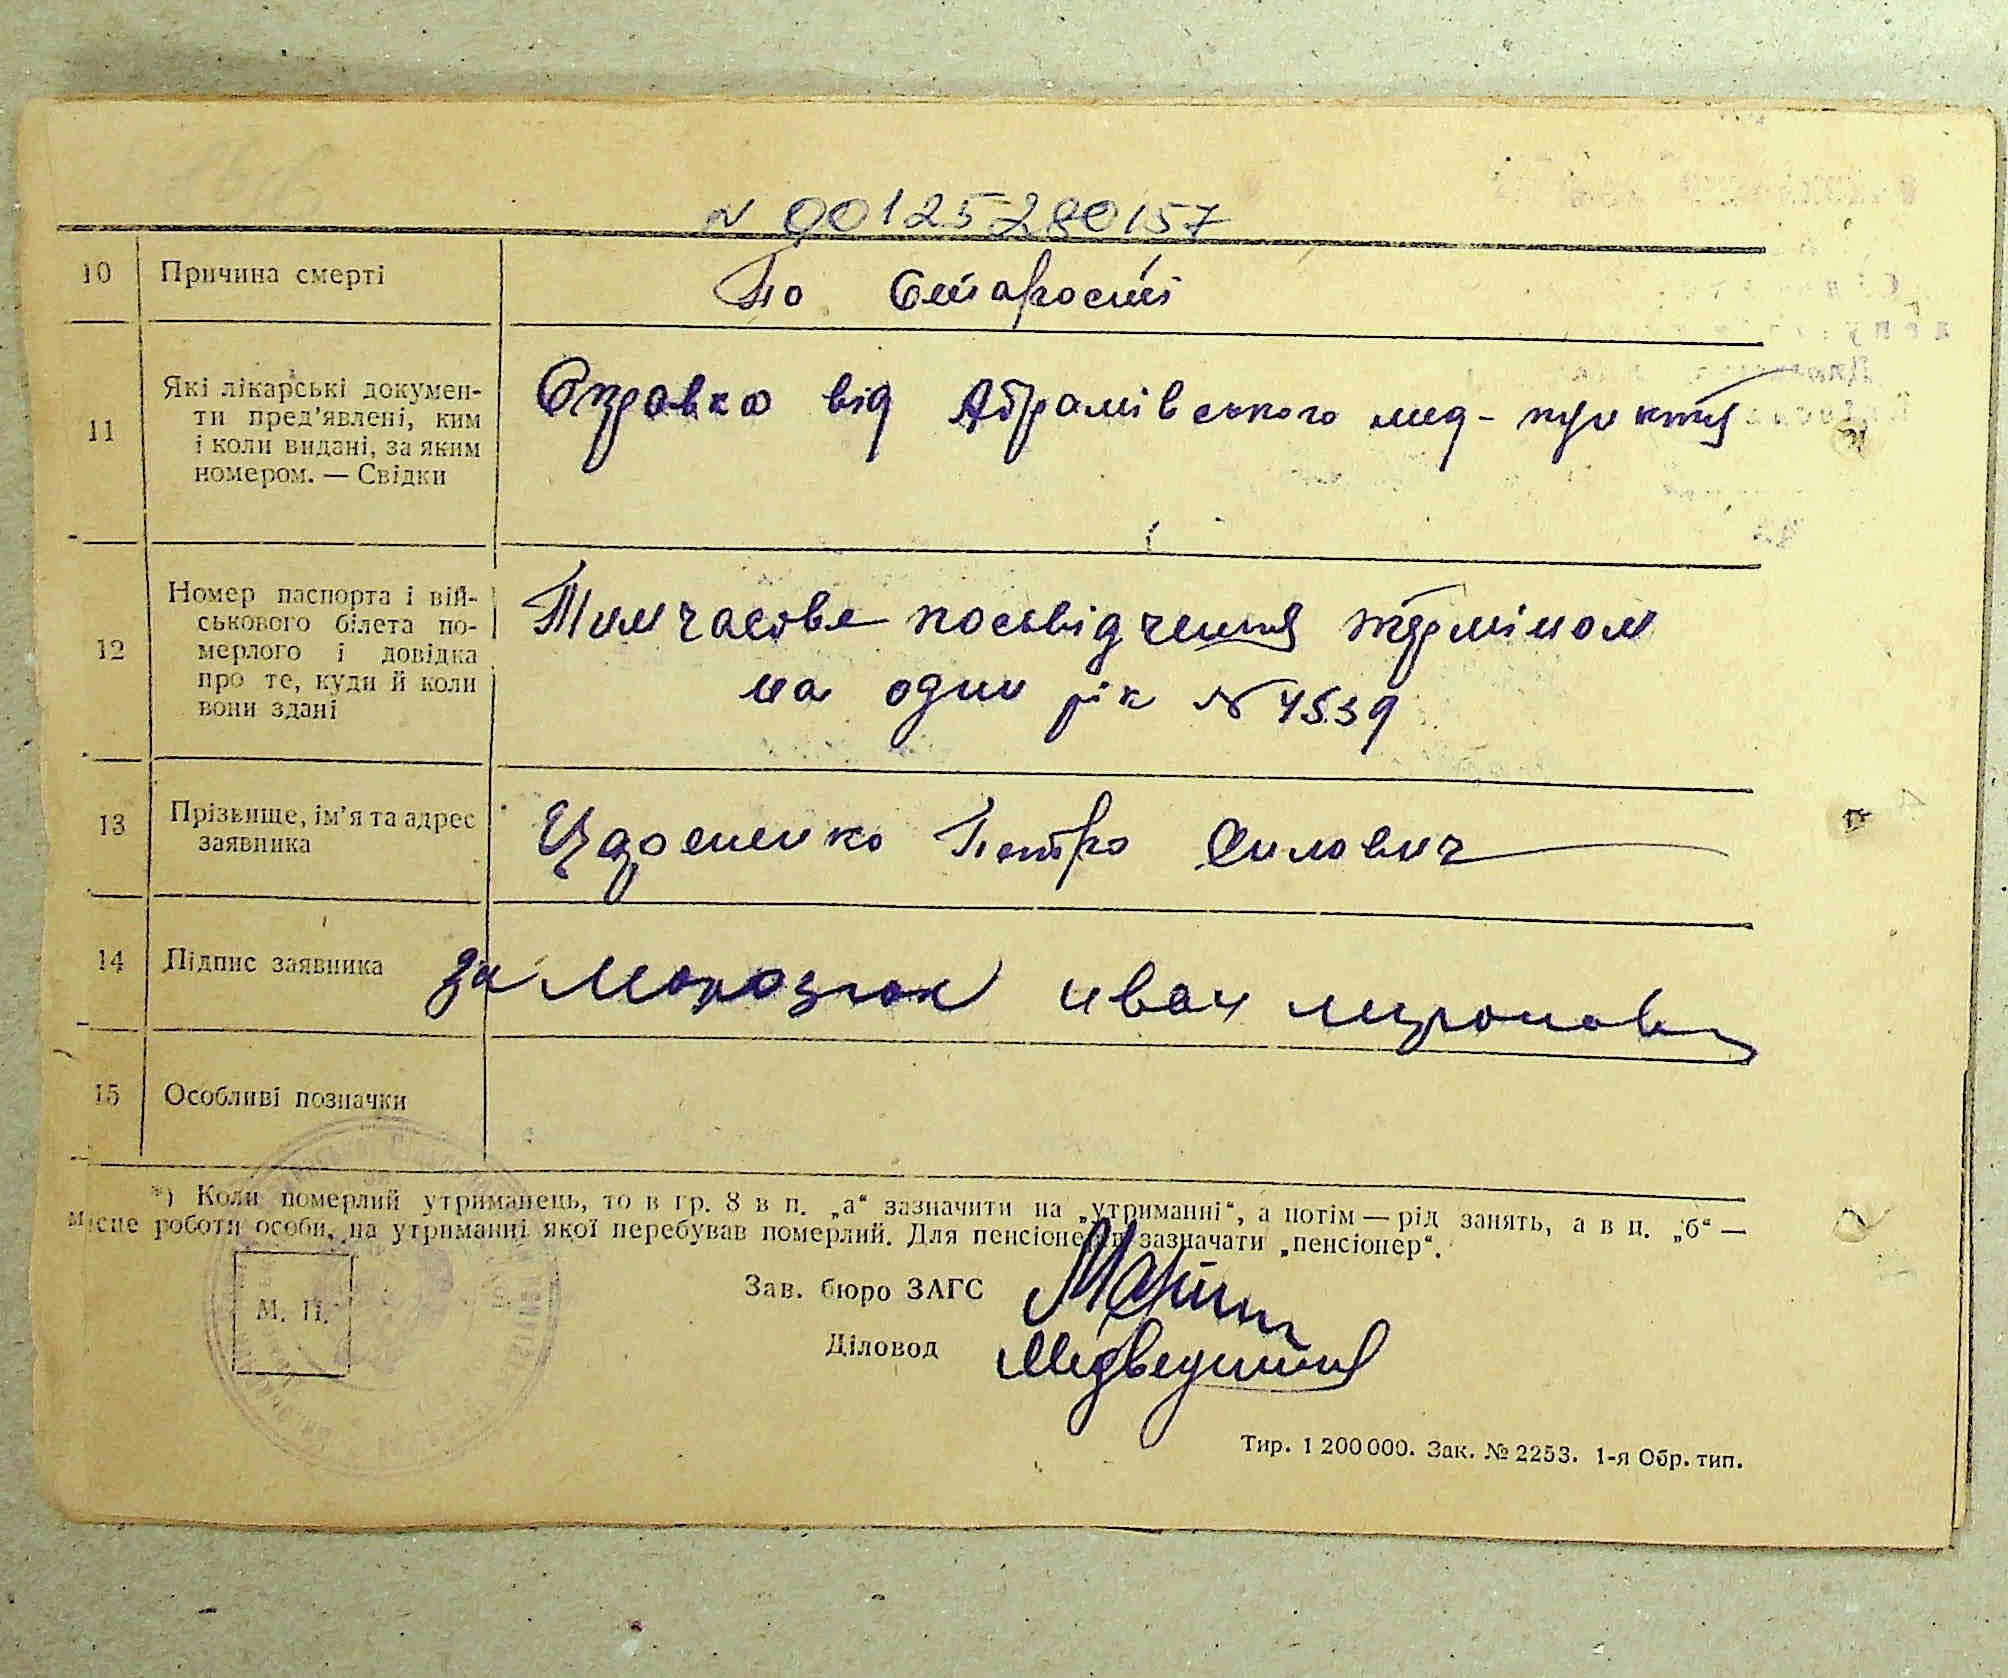 N 00125280157
10 Причина смерті По старості
11 Які лікарські докумен-
ти пред'явлені, ким
і коли видані, за яким
номером. — Свідки
Справка від Абрамівського мед-пункта
12 Номер паспорта і вій-
ськового білета по-
мерлого і довідка
про те, куди й коли
вони здані
Тимчасове посвідчення терміном
на один рік N 4539
13 Прізвище, ім'я та адрес
заявника
Петро Силович
14 Підпис заявника за Морозюк иван миронов
15 Особливі позначки
*) Коли померлий утриманець, то в гр. 8 в п. „а“ зазначити на „утриманні“, а потім — рід занять, а в п. „б“ —
місце роботи особи, на утриманні якої перебував померлий. Для пенсіонерів зазначати „пенсіонер“.
М. П.
Зав. бюро ЗАГС
Діловод
Тир. 1 200 000. Зак. № 2253. 1-я Обр. тип.